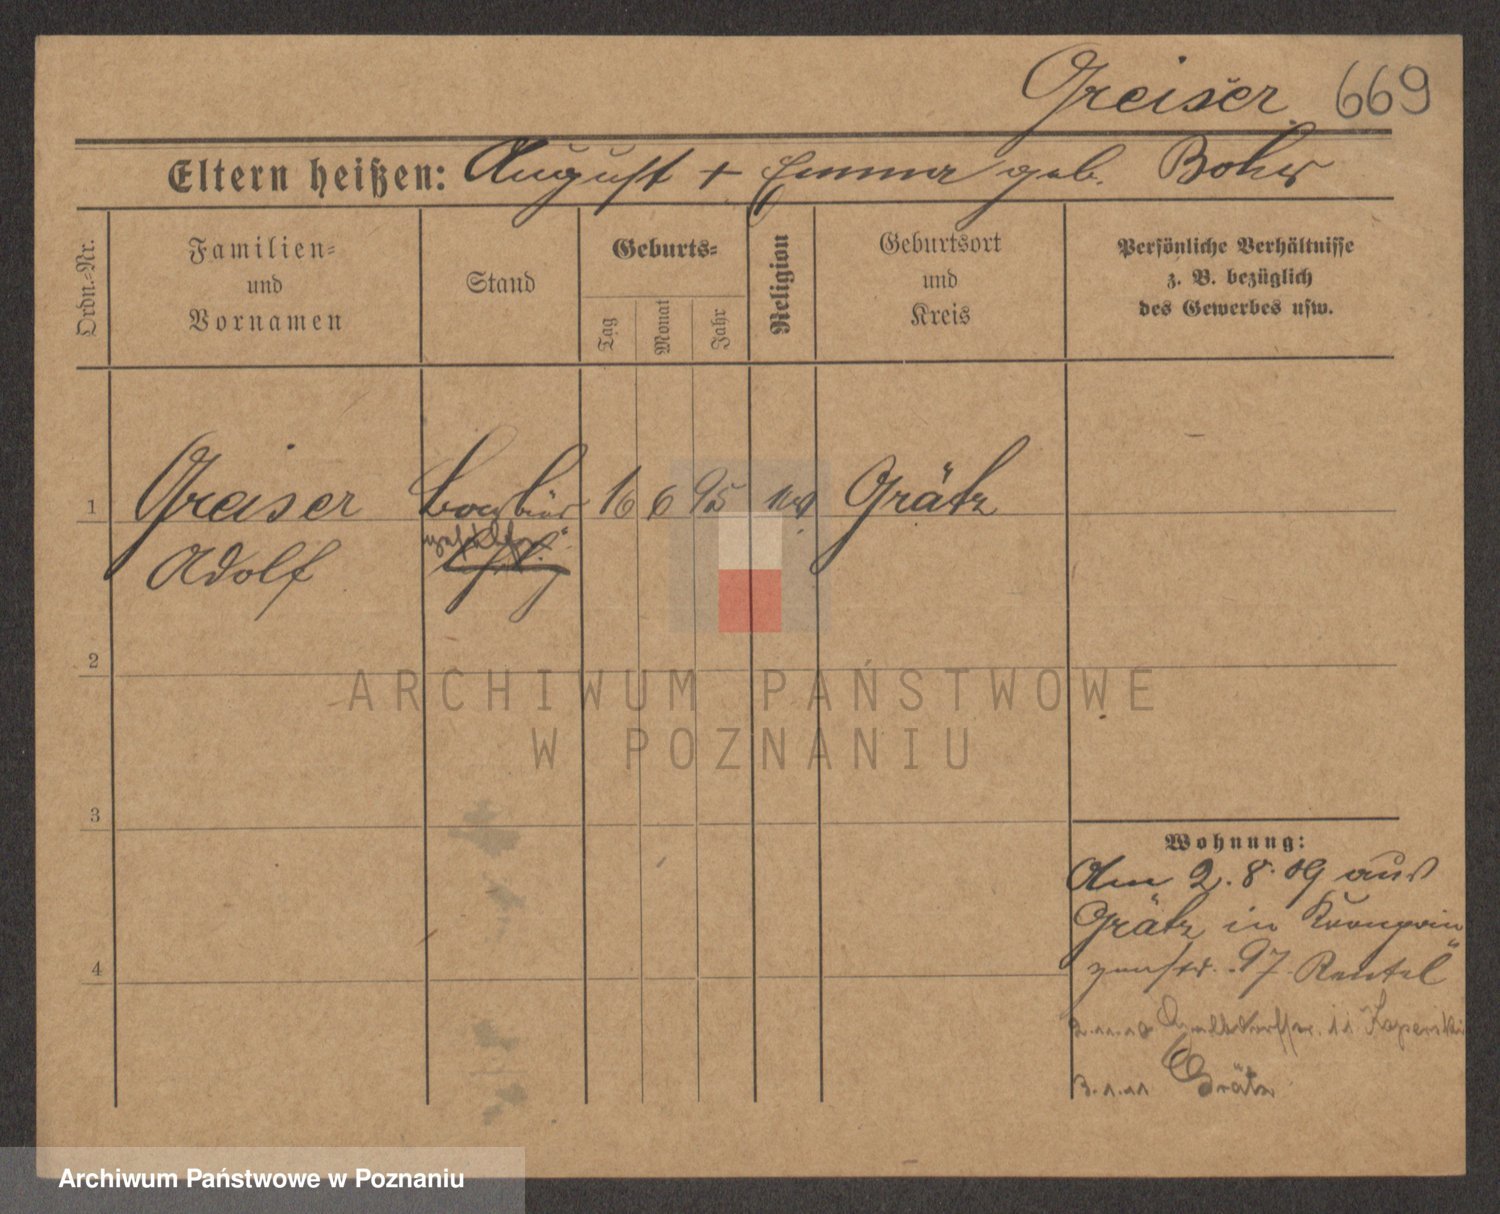 Greiser. 669
Eltern heißen: August + Emma geb. Bohr
Ordn.-Nr.
Familien-
und
Vornamen
Stand
Geburts-
Tag
Monat
Jahr
Religion
Geburtsort
und
Kreis
Persönliche Verhältnisse
z. B. bezüglich
des Gewerbes usw.
1 Greiser 16 6 95 Grätz
Adolf
2
3
4
Wohnung:
Am 2.8.09 aus
Grätz in Kronprin
zenstr. 97 Rentel
2.11.10 11
3.1.11 Grätz
ARCHIWUM PAŃSTWOWE
W POZNANIU
Archiwum Państwowe w Poznaniu